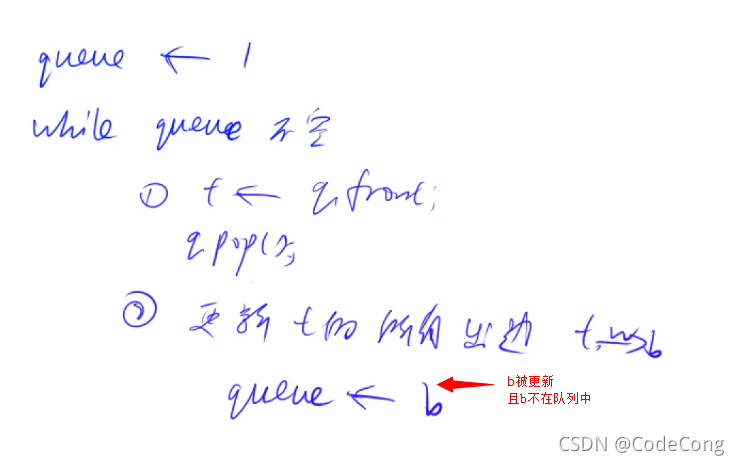 queue ← 1
while queue 不空
① t ← q.front;
q.pop();
② 更新t的所有出边 t w→ b
queue ← b
b被更新
且b不在队列中
CSDN @CodeCong